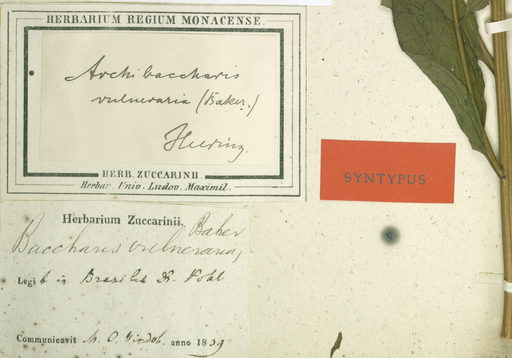 HERBARIUM REGIUM MONACENSE.
Archibaccharis
vulneraria (Baker.)
Heering.
HERB. ZUCCARINII.
Herbar. Univ. Ludov. Maximil.
SYNTYPUS
Herbarium Zuccarinii.
Baccharis vulneraria, Baker
Legit in Brasilia Dr. Pohl
Communicavit M. C. Vindob. anno 1839